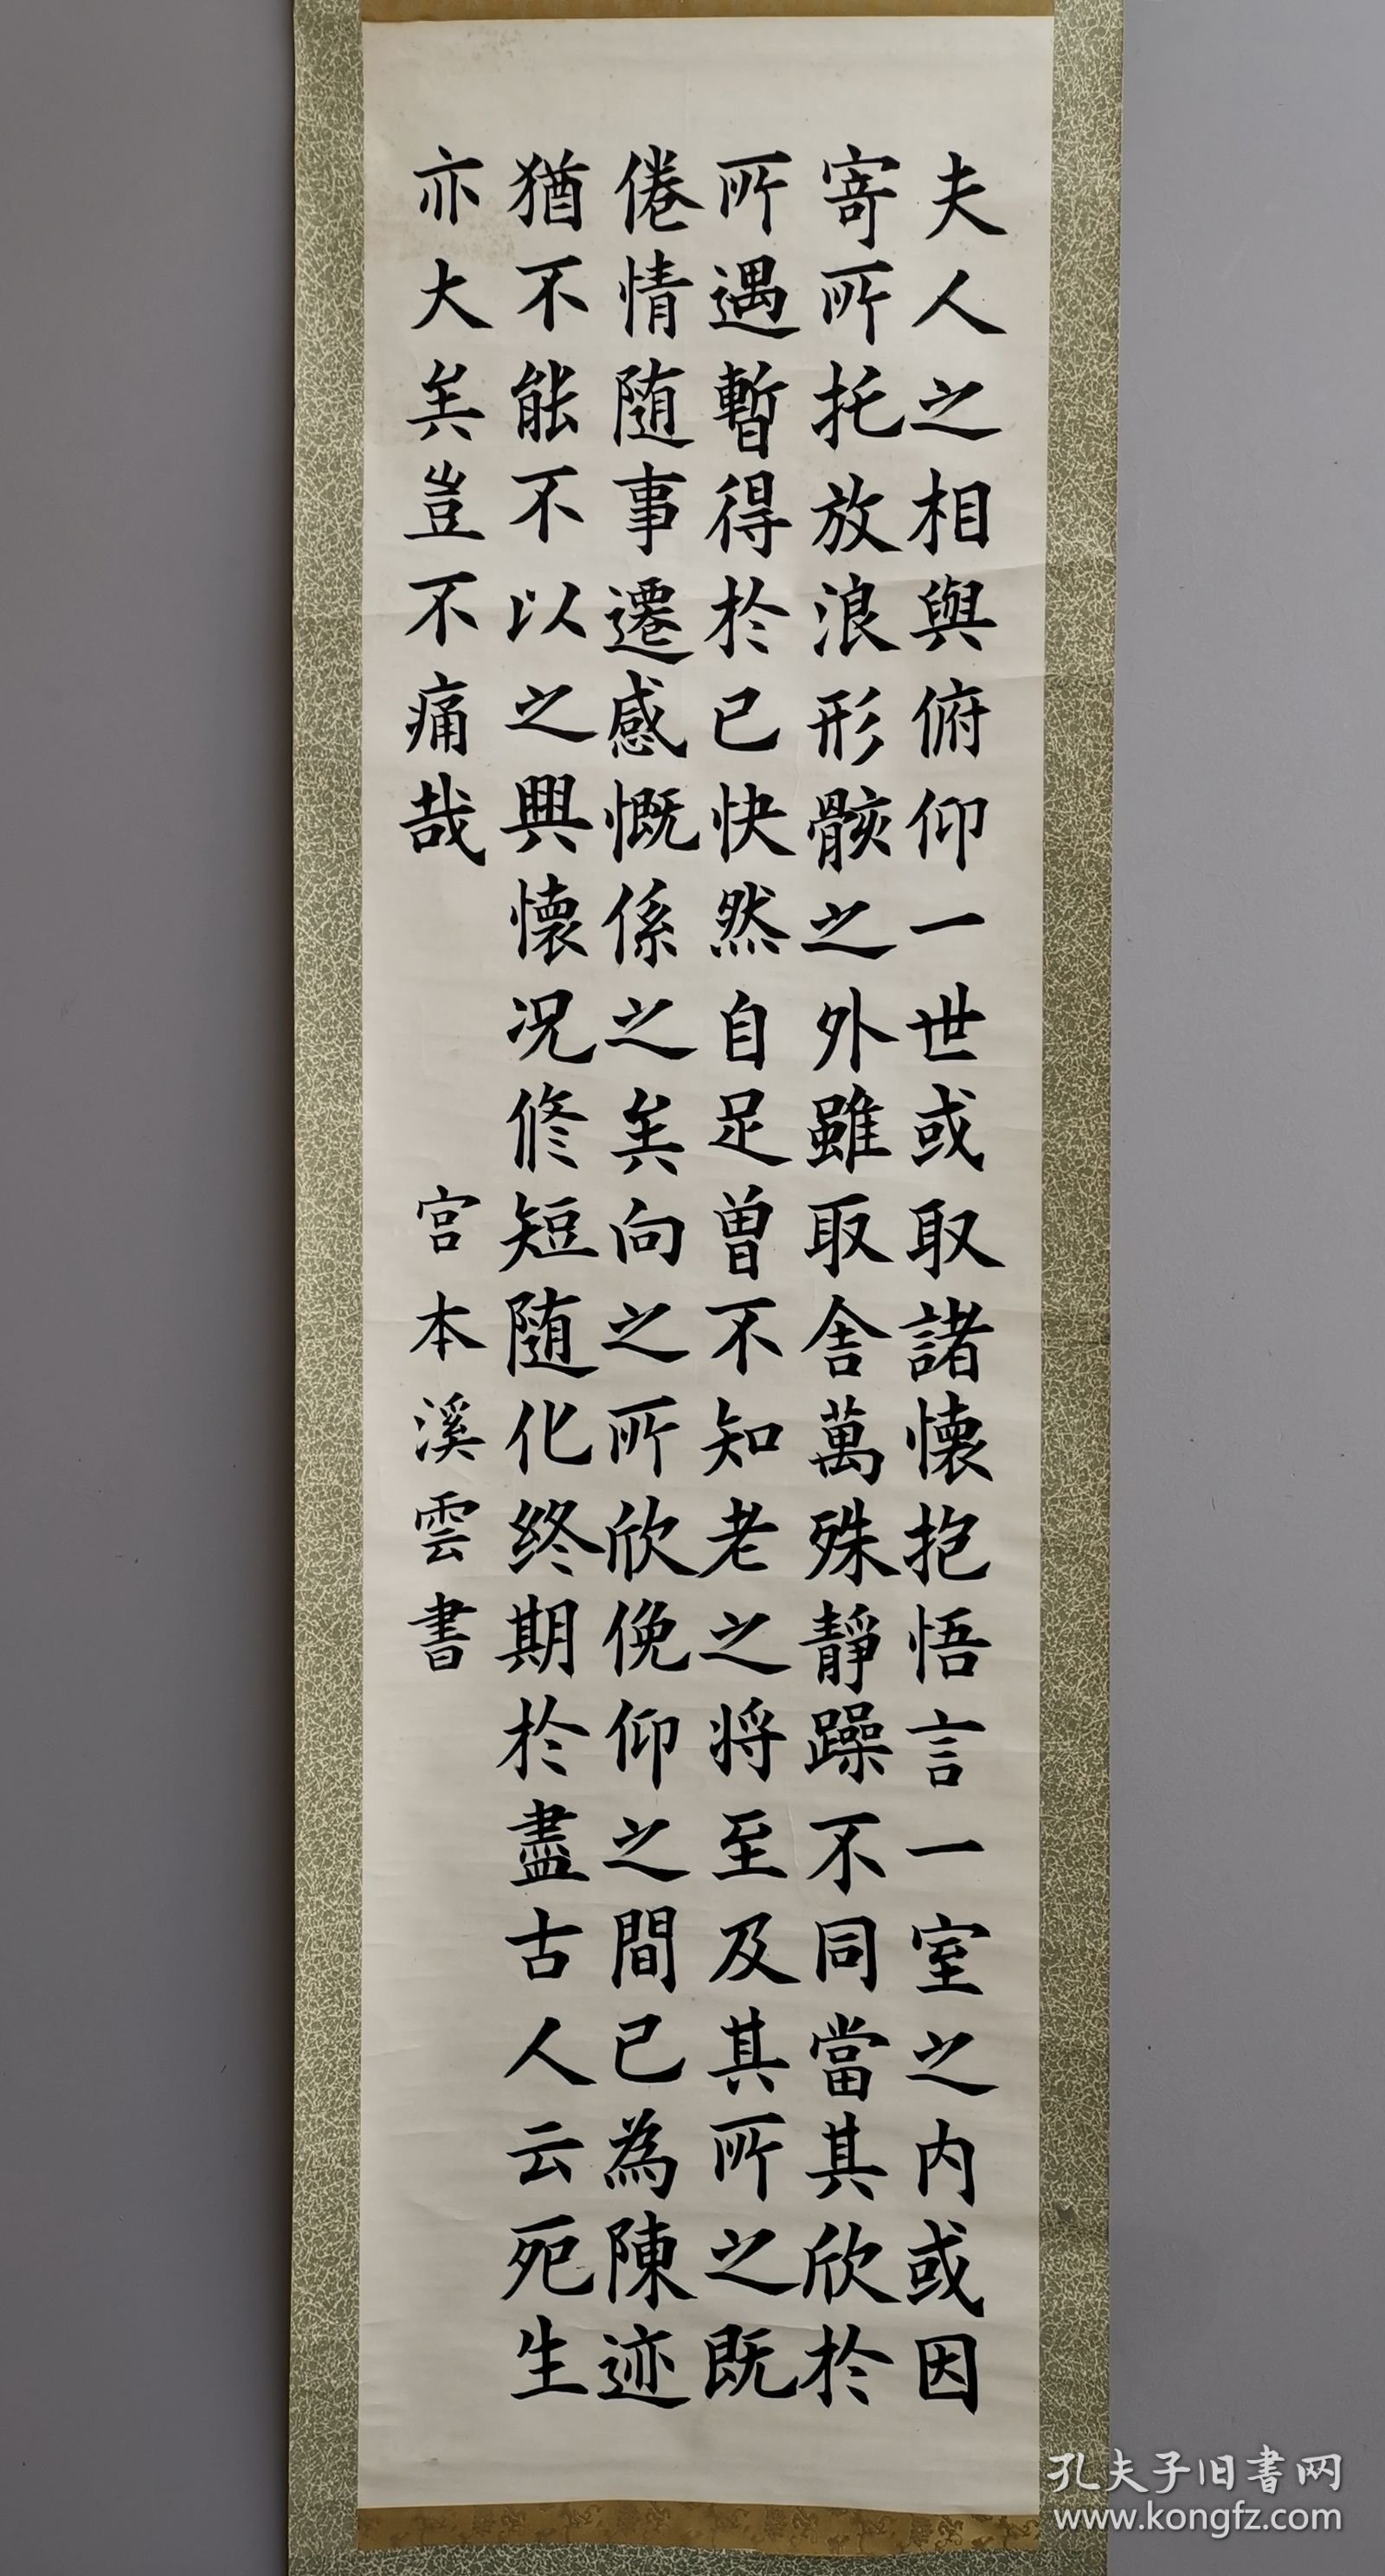 夫人之相與俯仰一世或取諸懷抱悟言一室之内或因
寄所托放浪形骸之外雖取舎萬殊靜躁不同當其欣於
所遇暫得於己快然自足曽不知老之将至及其所之既
倦情随事遷感慨係之矣向之所欣俛仰之間已為陳迹
猶不能不以之興懷况修短随化终期於盡古人云死生
亦大矣豈不痛哉
宮本溪雲書
孔夫子旧書网
www.kongfz.com